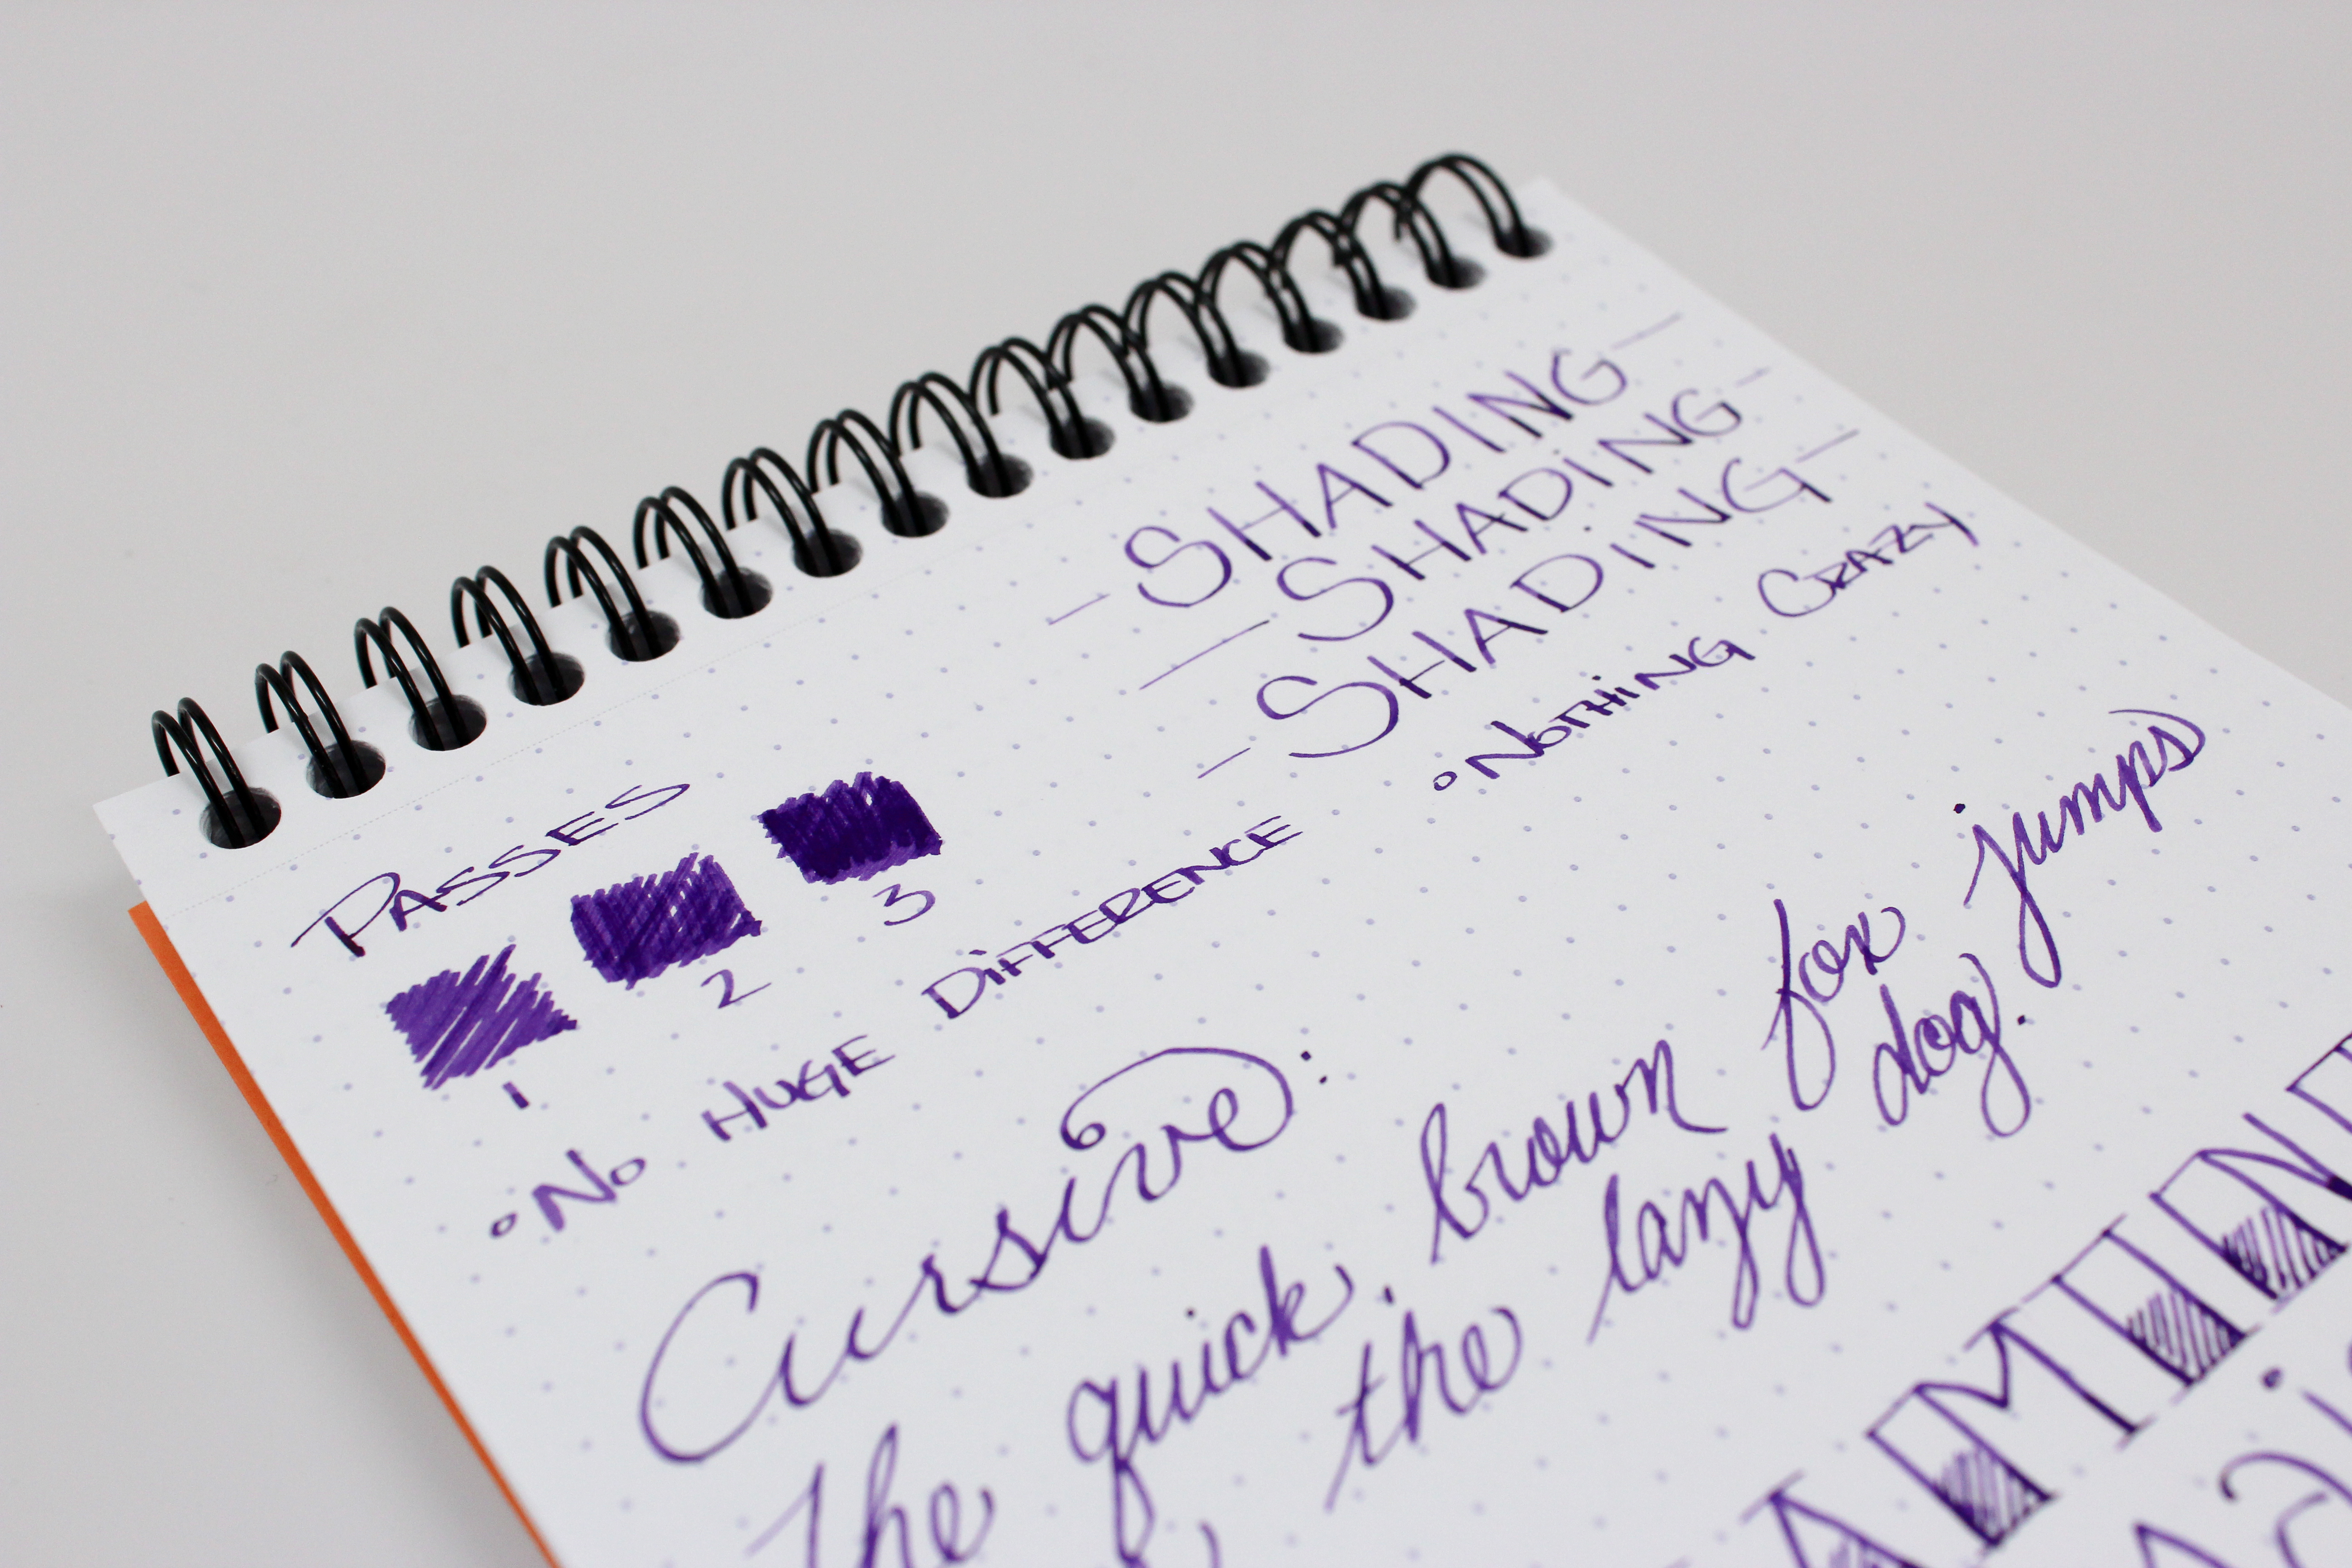 PASSES
1 2 3
• No HUGE DiFFERENCE
- SHADING -
- SHADING -
- SHADING -
• NoTHiNG CRAZY
Cursive:
The quick brown fox jumps
the lazy dog.